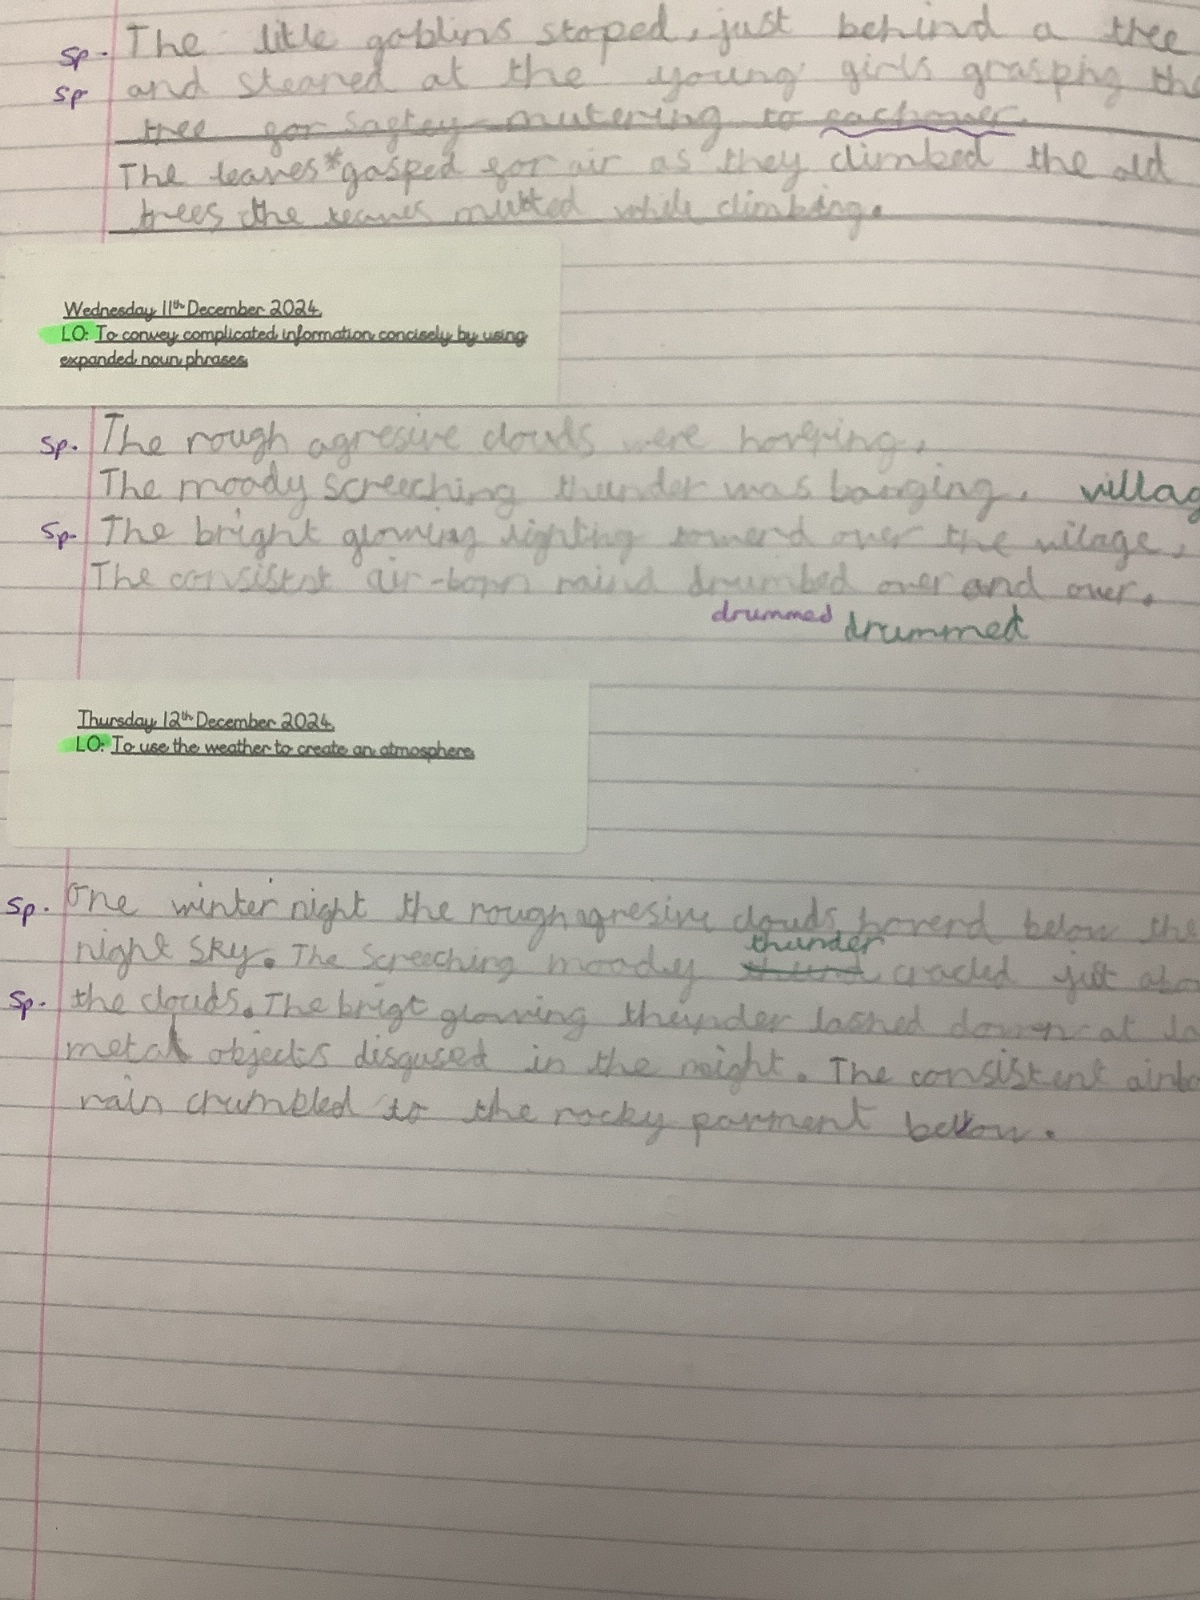 Sp. The litle goblins stoped, just behind a tree
Sp and steared at the young girls grasping the
tree for saftey mutering to eachover.
The leaves*gasped for air as they climbed the old
trees the leaves mutted while climbing.
Wednesday 11th December 2024
LO: To convey complicated information concisely by using
expanded noun phrases
Sp. The rough agresive clouds were hovering.
The moody screeching thunder was banging. villag
Sp. The bright glowing lighting towerd over the vilage.
The consistent air-born raind drumbed over and over.
drummed drummed
Thursday 12th December 2024
LO: To use the weather to create an atmosphere
Sp. One winter night the rough agresive clouds hoverd below the
thunder
night sky. The screeching moody thund cracled just abo
Sp. the clouds. The brigt glowing theunder lashed down at
metal objects disgused in the night. The consistent airbo
rain crumbled to the rocky parment below.